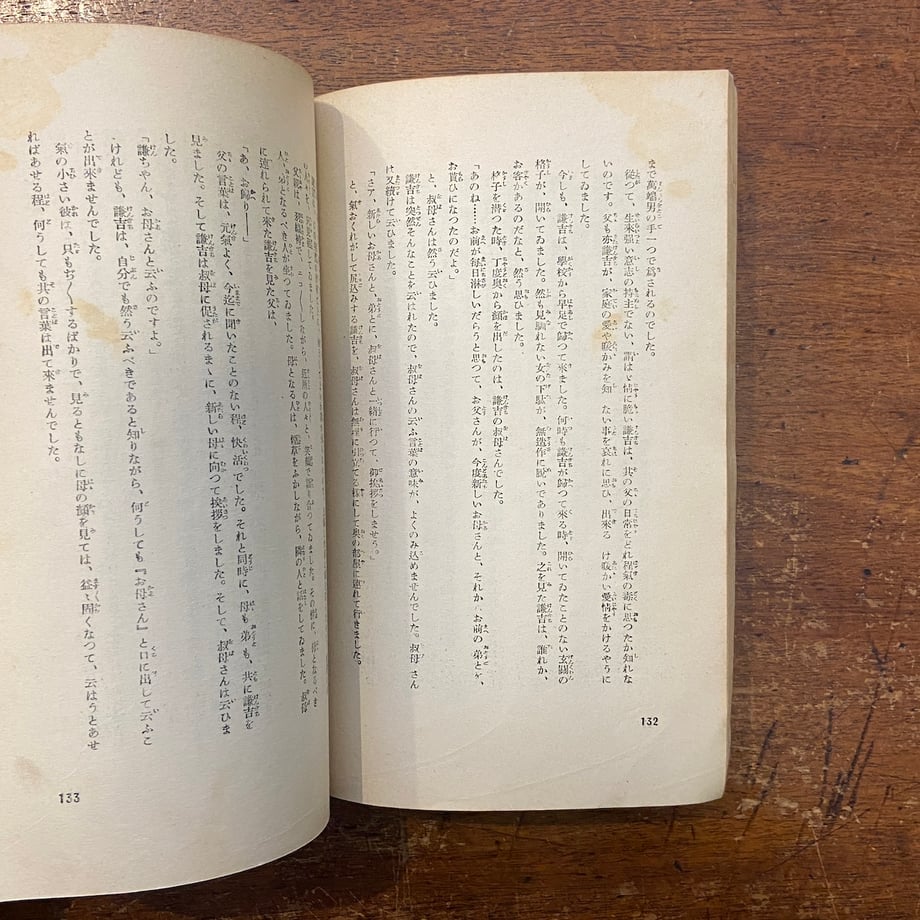 まで萬端男の手一つで爲されるのでした。
從つて、生來强い意志の持主でない、謂はゞ情に脆い謙吉は、其の父の日常をどれ程氣の毒に思つたか知れな
いのです。父も亦謙吉が、家庭の愛や暖かみを知 ない事を哀れに思ひ、出來る け暖かい愛情をかけるやうに
してゐました。
今しも、謙吉は、學校から早足で歸つて來ました。何時も謙吉が歸つて來る時、開いてゐたことのない玄關の
格子が、開いてゐました。然も見馴れない女の下駄が、無造作に脱いでありました。之を見た謙吉は、誰れか、
お客があるのだなと、然う思ひました。
格子を潜つた時、丁度奥から顔を出したのは、謙吉の叔母さんでした。
「あのね……お前が毎日淋しいだらうと思つて、お父さんが、今度新しいお母さんと、それか お前の弟とを、
お貰ひになつたのだよ。」
と、叔母さんは然う云ひました。
謙吉は突然そんなことを云はれたので、叔母さんの云ふ言葉の意味が、よくのみ込めませんでした。叔母 さん
は又續けて云ひました。
「さア、新しいお母さんと、弟とに、叔母さんと一緒に行つて、御挨拶をしませう。」
と、氣おくれがして尻込みする謙吉を、叔母さんは無理に引立てる樣にして奥の部屋に連れて行きました。
父親は、 近所の人々と、 語り合つてゐました。その横に、母となるべき
人、弟となるべき人が坐つてゐました。母となる人は、煙草をふかしながら、隣の人と話をしてゐました。叔母
に連れられて來た謙吉を見た父は、
「あ、お歸り――」
父の言葉は、元氣よく、今迄に聞いたことのない程、快活でした。それと同時に、母も、弟も、共に謙吉を
見ました。そして謙吉は叔母に促されるまゝに、新しい母に向つて挨拶をしました。そして、叔母さんは云ひま
した。
「謙ちやん、お母さんと云ふのですよ。」
けれども、謙吉は、自分でも然う云ふべきであると知りながら、何うしても『お母さん』と口に出して云ふこ
とが出來ませんでした。
氣の小さい彼は、只もぢ〱するばかりで、見るともなしに母の顔を見ては、益々固くなつて、云はうとあせ
ればあせる程、何うしても其の言葉は出て來ませんでした。
132
133